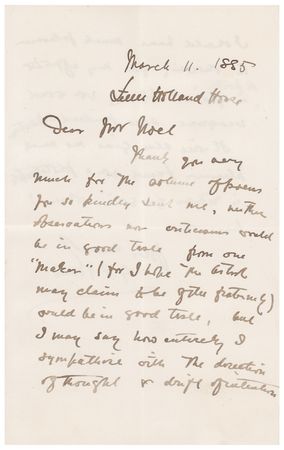 March 11. 1885
Little Holland House
Dear Mr Noel
Thank you very
much for the volume of poems
you so kindly sent me, neither
observations nor criticisms would
be in good taste from one
"Maker" (for I hope the artist
may claim to be of the fraternity)
would be in good taste, but
I may say how entirely I
sympathise with the direction
of thought & drift of intention